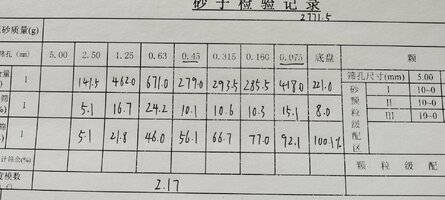 砂子检验记录
2771.5
砂质量(g)
筛孔 (mm) 5.00 2.50 1.25 0.63 0.45 0.315 0.160 0.075 底盘 颗
量 1 141.5 462.0 671.0 279.0 293.5 285.5 418.0 221.0 筛孔尺寸(mm) 5.00
筛 1 5.1 16.7 24.2 10.1 10.6 10.3 15.1 8.0 砂 I 10~0
%) 颗 II 10~0
筛 1 5.1 21.8 46.0 56.1 66.7 77.0 92.1 100.1% 粒 III 10~0
%) 级
计筛余(%) 配
区
度模数 2.17 颗粒级配